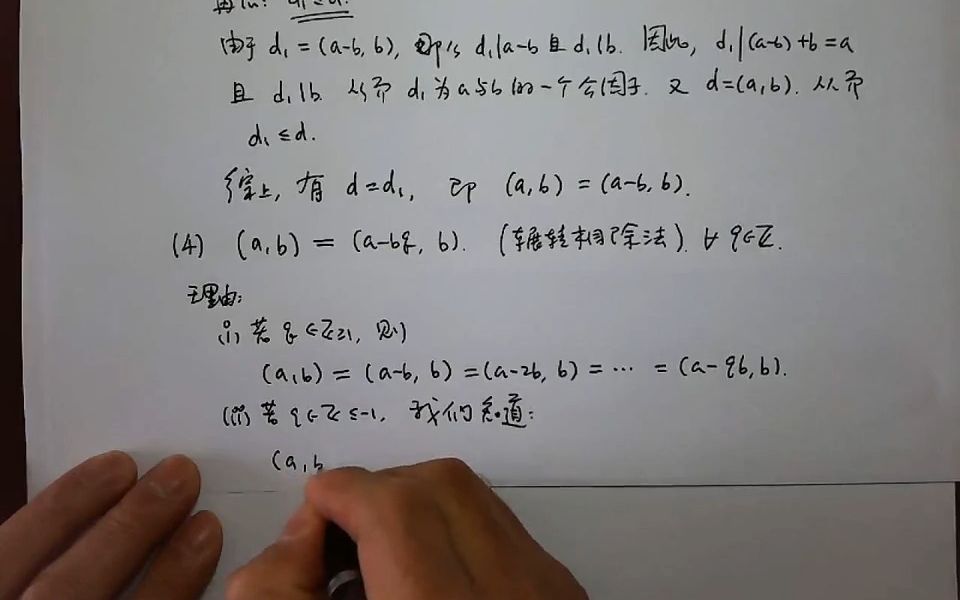 再证: d₁≤d.
由于 d₁ = (a-b, b), 即 d₁|a-b 且 d₁|b. 因此, d₁|(a-b)+b=a
且 d₁|b. 从而 d₁ 为 a 与 b 的一个公因子. 又 d=(a,b). 从而
d₁ ≤ d.
综上, 有 d=d₁, 即 (a,b) = (a-b, b).
(4) (a,b) = (a-bq, b). (辗转相除法). ∀ q∈ℤ.
理由:
(i) 若 q ∈ ℤ≥1, 则
(a,b) = (a-b, b) = (a-2b, b) = ⋯ = (a-qb, b).
(ii) 若 q ∈ ℤ≤-1, 我们知道:
(a,b